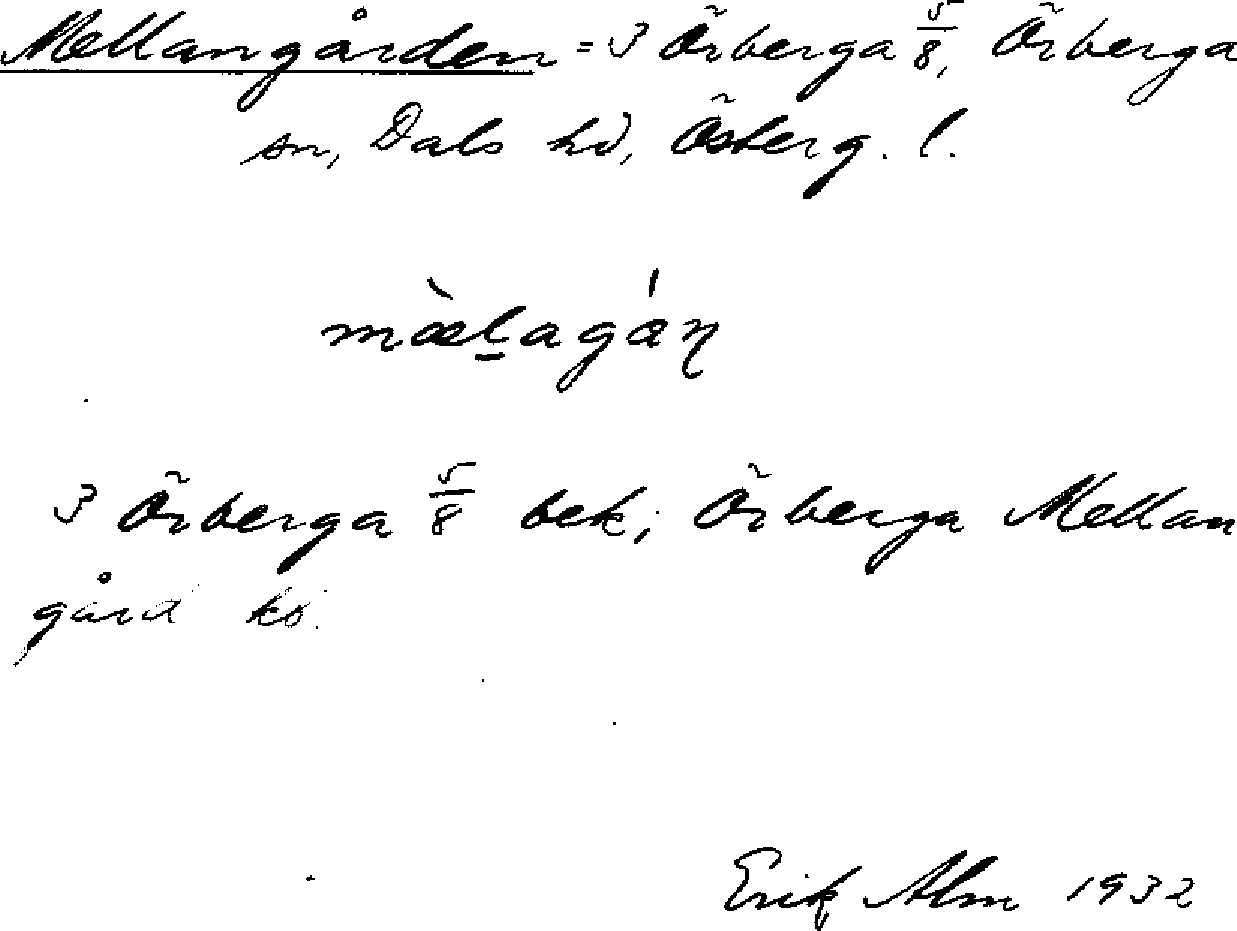 Mellangården = 3 Örberga 5/8, Örberga
sn, Dals hd, Österg. l.
mæ̀l̠agáɳ
3 Örberga 5/8 bek; Örberga Mellan
gård ks.
Erik Alm 1932